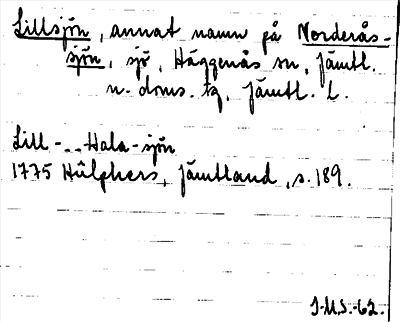 Lillsjön, annat namn på Norderås-
sjön, sjö, Häggenås sn, Jämtl.
n. doms. tg, Jämtl. L.
Lill - .. Hala-sjön
1775 Hülphers, Jämtland, s. 189.
J.M.S.-62.